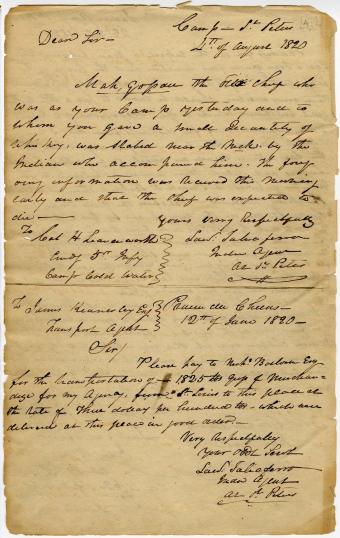 Camp – St Peters
Dear Sir – 4th of August 1820
Mah gossau the Old Chief who
was at your Camp yesterday and to
whom you gave a small Quantity of
Whiskey, was stabed near the Neck by the
Indian who accompanied him. The forg
oing information was received this morning
early and that the Chief was expected to
die –
Yours Very Respectfully
To
Col H Leavenworth
Comdg 5th Infy
Camp Cold Water
Law. Taliaferro
Indian Agent
At St Peters
To James Kennerley Esq
Transport Agent
Prairie du Chiens –
12th of June 1820 –
Sir/
Please pay to Nichs Boilvin Esq
for the transportation of 1825 lbs of Merchan-
dize for my Agency, from St Louis to this place at
the rate of three dollars per hundred lbs – which are
delivered at this place in good order –
Very Respectfuley
Your Obdt Servt
Law. Taliaferro
Indn Agent
At St Peters